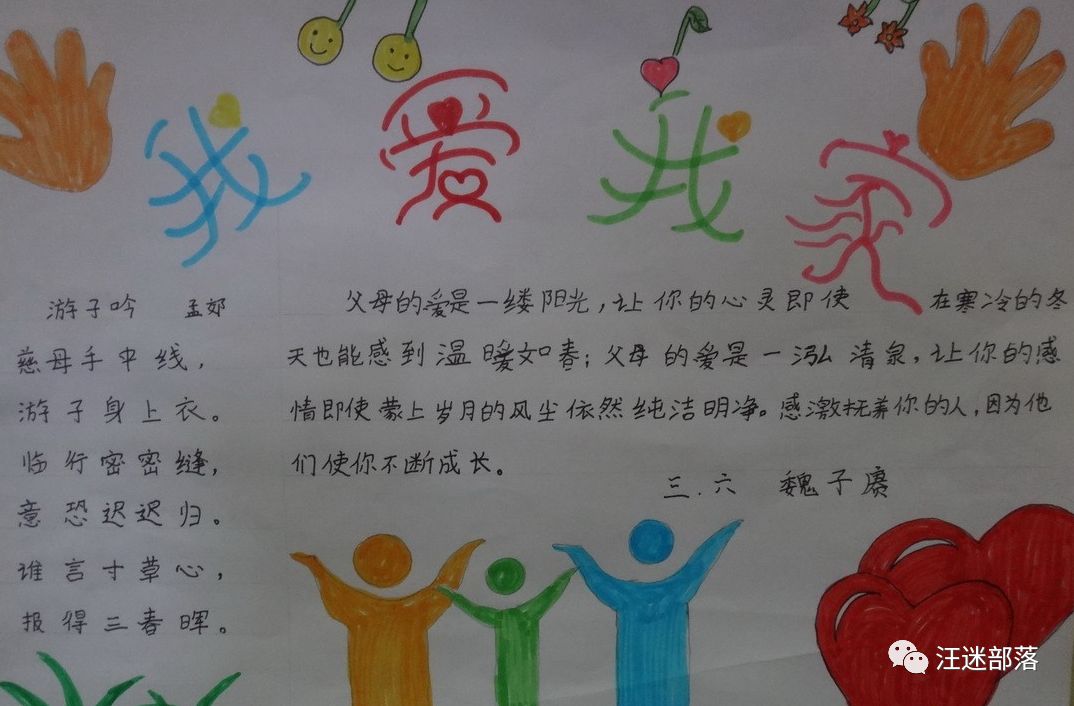 我爱我家
游子吟 孟郊
慈母手中线，
游子身上衣。
临行密密缝，
意恐迟迟归。
谁言寸草心，
报得三春晖。
父母的爱是一缕阳光，让你的心灵即使 在寒冷的冬
天也能感到温暖如春；父母的爱是一泓清泉，让你的感
情即使蒙上岁月的风尘依然纯洁明净。感激抚养你的人，因为他
们使你不断成长。
三.六 魏子赓
汪迷部落